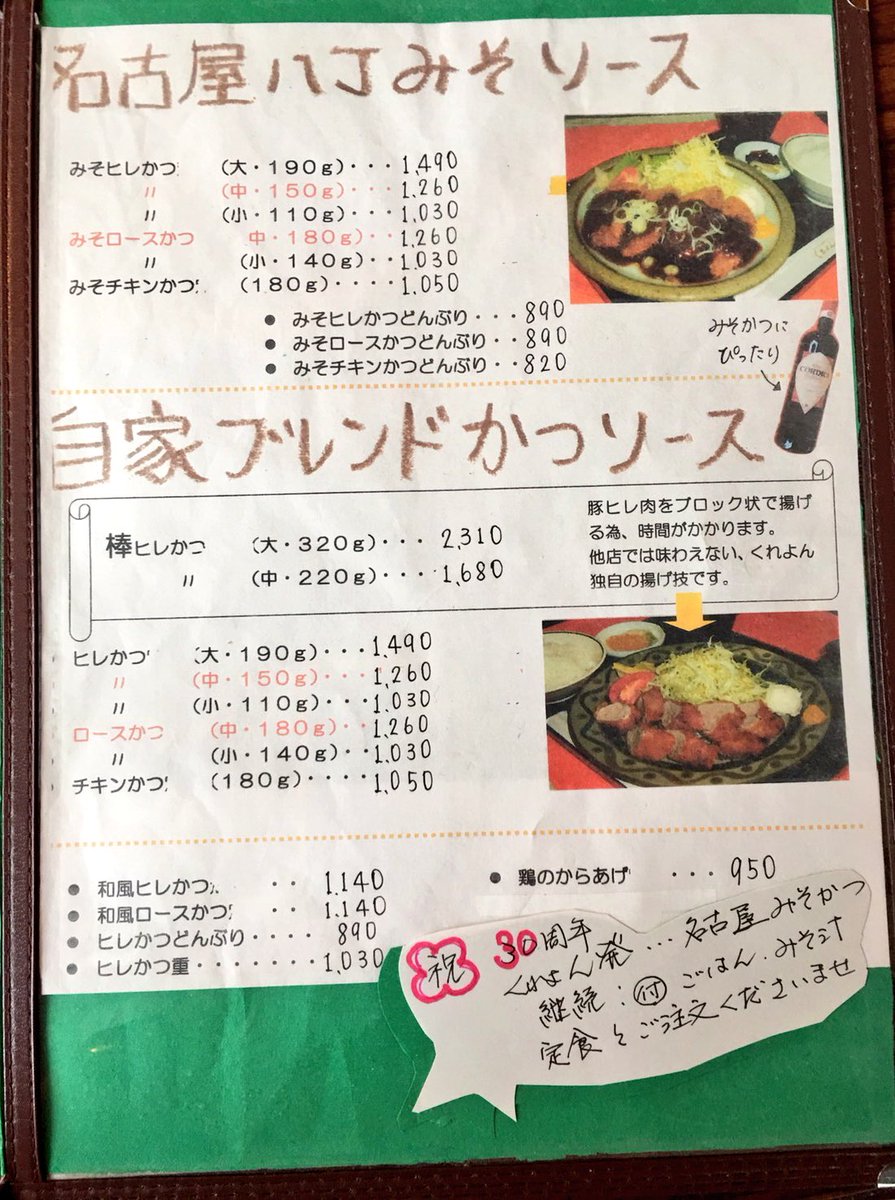 名古屋八丁みそソース
みそヒレかつ (大・190g)・・・1,490
〃 (中・150g)・・・1,260
〃 (小・110g)・・・1,030
みそロースかつ 中・180g)・・1,260
〃 (小・140g)・・1,030
みそチキンかつ (180g)・・・・1,050
● みそヒレかつどんぶり・・・890
● みそロースかつどんぶり・・890
● みそチキンかつどんぶり・・820
みそかつに
ぴったり
自家ブレンドかつソース
棒ヒレかつ (大・320g)・・・2,310
〃 (中・220g)・・・1,680
豚ヒレ肉をブロック状で揚げ
る為、時間がかかります。
他店では味わえない、くれよん
独自の揚げ技です。
ヒレかつ (大・190g)・・・1,490
〃 (中・150g)・・・1,260
〃 (小・110g)・・・1,030
ロースかつ (中・180g)・・1,260
〃 (小・140g)・・1,030
チキンかつ (180g)・・・・1,050
● 和風ヒレかつ ・・1,140
● 和風ロースかつ ・1,140
● ヒレかつどんぶり・・・・890
● ヒレかつ重・・・・・・・1,030
● 鶏のからあげ ・・・950
祝 30周年
くれよん発...名古屋みそかつ
継続:付 ごはん.みそ汁
定食とご注文くださいませ